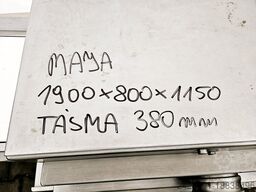 MAYA
1900x800x1150
TAŚMA 380mm